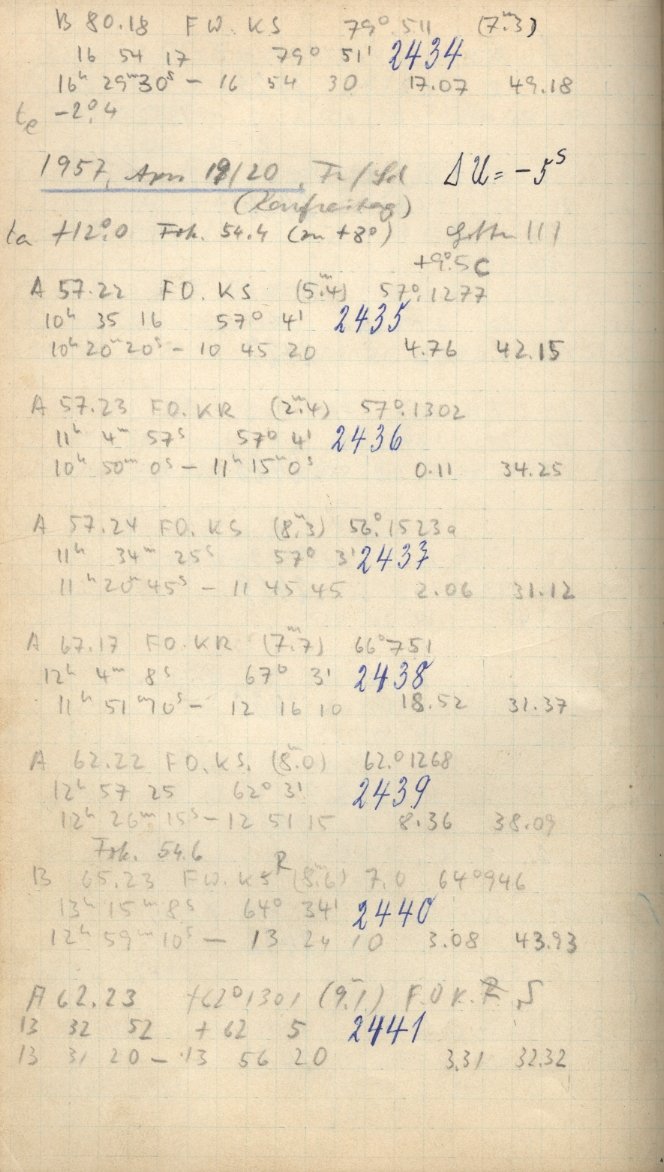 B 80.18 F.W. KS 79° 511 (7ᵐ.3)
16 54 17 79° 51' 2434
16ʰ 29ᵐ30ˢ - 16 54 30 17.07 49.18
te -2°.4
1957, Apr 19/20, Fr/Sd ΔU = -5ˢ
(Karfreitag)
ta +12°.0 Fok. 54.4 (zu +8°) III
+9°.5 C
A 57.22 FO. KS (5ᵐ.4) 57°.1277
10ʰ 35 16 57° 4' 2435
10ʰ 20ᵐ 20ˢ - 10 45 20 4.76 42.15
A 57.23 FO. KR (2ᵐ.4) 57°.1302
11ʰ 4ᵐ 57ˢ 57° 4' 2436
10ʰ 50ᵐ 0ˢ - 11ʰ 15ᵐ 0ˢ 0.11 34.25
A 57.24 FO. KS (8ᵐ.3) 56°.1523a
11ʰ 34ᵐ 25ˢ 57° 3' 2437
11ʰ 20ᵐ 45ˢ - 11 45 45 2.06 31.12
A 67.17 FO. KR (7ᵐ.7) 66°751
12ʰ 4ᵐ 8ˢ 67° 3' 2438
11ʰ 51ᵐ 10ˢ - 12 16 10 18.52 31.37
A 62.22 FO. KS. (8ᵐ.0) 62.°1268
12ʰ 57 25 62° 3' 2439
12ʰ 26ᵐ 15ˢ - 12 51 15 8.36 38.09
Fok. 54.6
B 65.23 F.W. KS R (8ᵐ.6) 7.0 64°946
13ʰ 15ᵐ 8ˢ 64° 34' 2440
12ʰ 59ᵐ 10ˢ - 13 24 10 3.08 43.93
A 62.23 +62°1301 (9ᵐ.1) F.O K.R S
13 32 52 + 62 5 2441
13 31 20 - 13 56 20 3.31 32.32